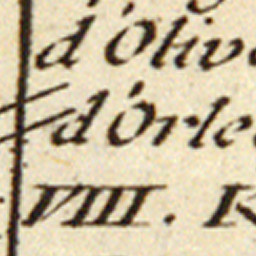 d'Oliv
d'Orle
VIII. R